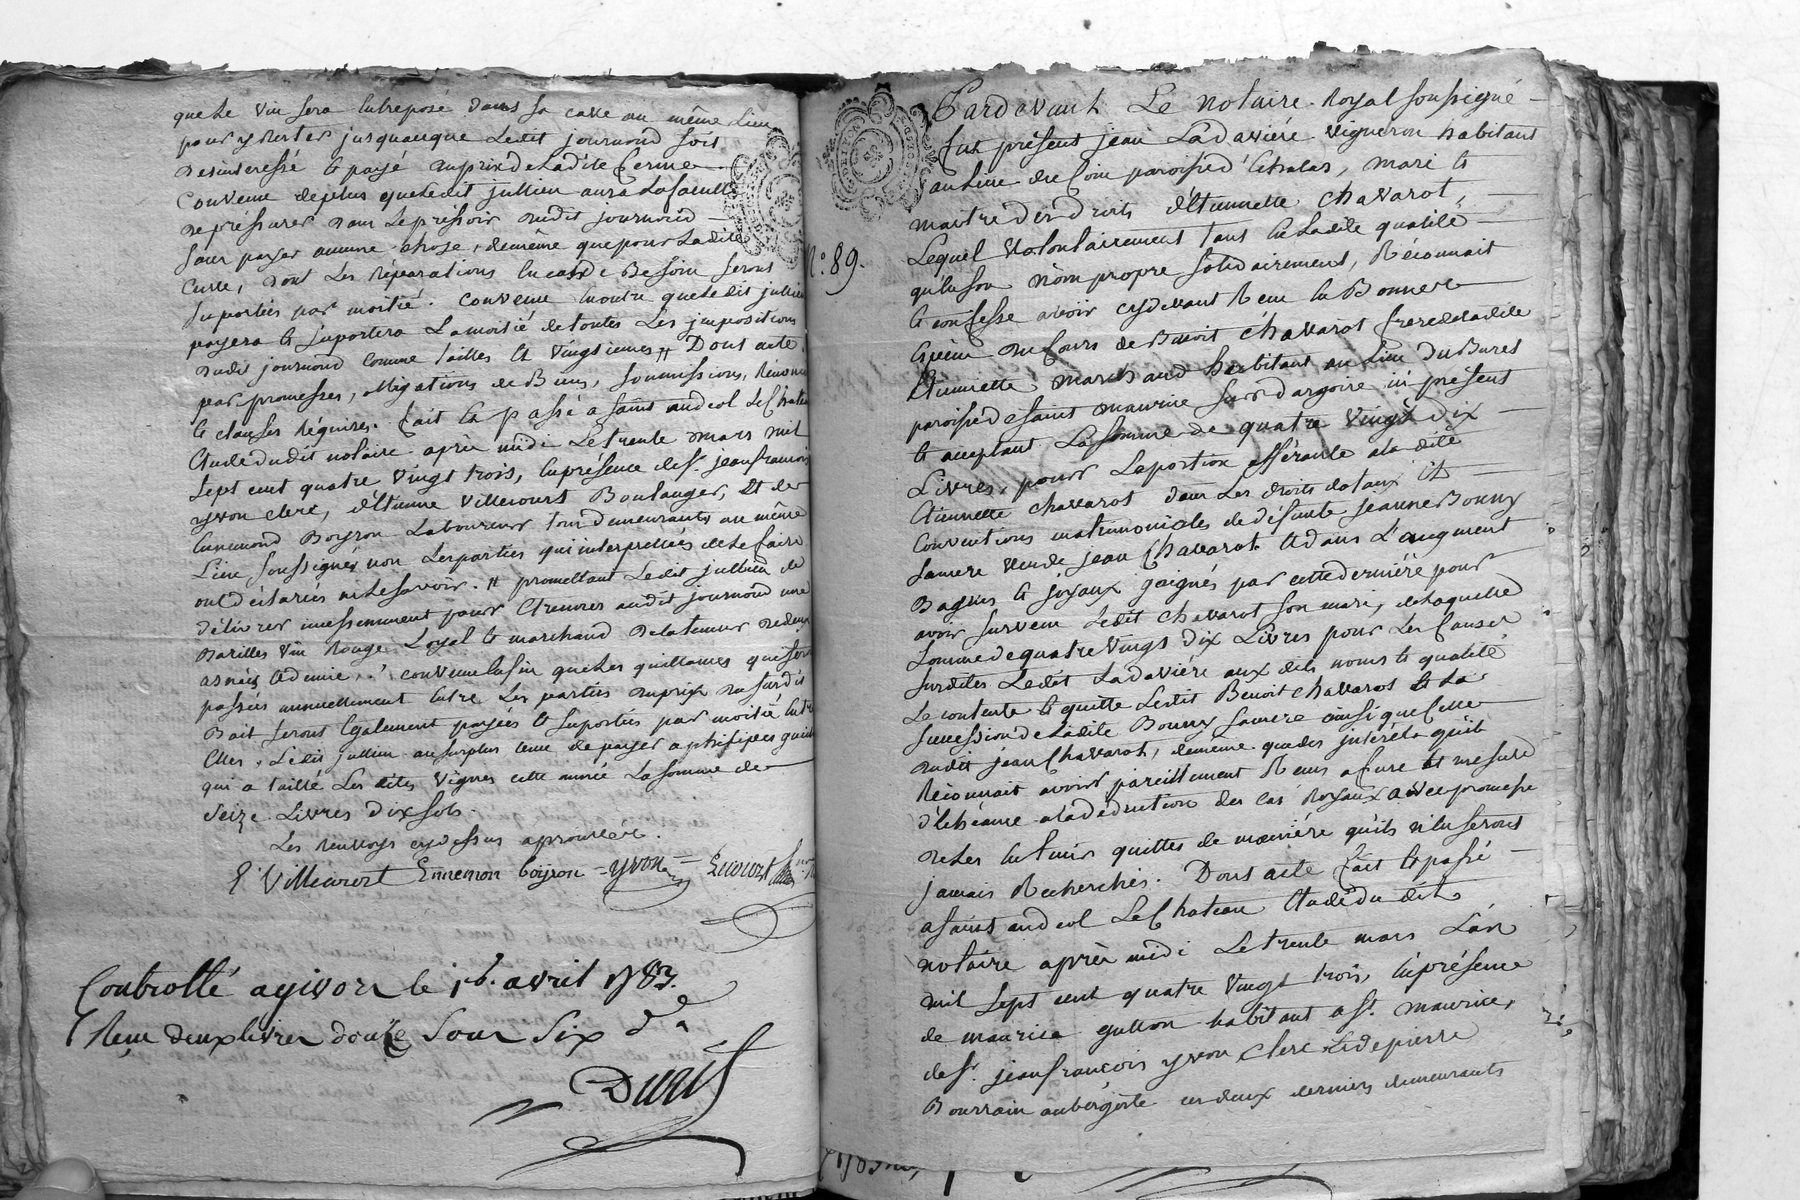 que le vin sera entreposé dans sa cave au même Lieu
pour y rester jusquaceque Ledit journoud soit
desinteressé et payé auprix deladite ferme
Convenu deplus queledit jullien aura Lafaculté
depressurer dans Lepressoir dudit journoud
sans payer aucune chose, demême que pour Ladite
Cuve, dont Les Réparations en cas de Besoin seront
suportées par moitié. Convenu encontre queledit jullien
payera et suportera Lamoitié detoutes Les impositions
dudit journoud comme tailles et vingtiemes // Dont acte
par promesses, obligations de Biens, soumissions, Renon
et clauses Réquises. fait et passé a saint andeol Le Chateau
Etude dudit notaire après midi Le trente mars mil
sept cent quatre vingt trois, en présence de sr. jeanfrancois
yvon clerc, d'Etienne Villecourt Boulanger, Et de
Ennemond Boyron Laboureur tous demeurants au même
Lieu soussignés non Lesparties qui interpellées dele faire
ont déclarées nele savoir. // promettant Ledit jullien de
délivrer incessamment pour Etrennes audit journoud une
Barilles vin Rouge Loyal et marchand delateneur dedeux
asnées et demie. convenu enfin queles quittances que seront
passées annuellement Entre Les parties du prix du susdit
Bail seront Egalement payées et suportées par moitié Entre
Elles, Ledit jullien au surplus tenu de payer
qui a taillé Les dites Vignes cette année La somme de
seize Livres Dix sols.
Les Renvoys cy dessus aprouvés.
E Villecourt Ennemon boyron yvon
Controllé a givors le 16. avril 1783.
Reçu deux livres douze sous six drs
Duris
N°. 89.
Pardevant Le notaire Royal soussigné
fut présent jean Ladaviere vigneron habitant
au Lieu de paroisse d'Echalas, mari et
maitre des droits d'Etiennette Chavarot,
Lequel volontairement tant en Ladite qualité
qu'en son nom propre solidairement, Réconnait
et confesse avoir cydevant Reçu en Bonnes
Espèces du Cours de Benoit Chavarot frere deladite
Etiennette marchand habitant au Lieu Du Buret
paroisse de saint maurice sur dargoire ici présent
et acceptant La somme de quatre Vingt Dix
Livres, pour Laportion afférante aladite
Etiennette chavarot dans Les droits dotaux Et
Conventions matrimoniales de défunte jeanne Bonny
samere veuve jean Chavarot Et dans L'augment
Bagues et joyaux gaignés par cettederniére pour
avoir survécu Ledit chavarot son mari, delaquelle
somme de quatre vingt dix Livres pour Les Causes
susdites Ledit Ladaviére aux dits noms et qualité
se contente et quitte Ledit Benoit chavarot Et La
succession deladite Bonny samere ainsi que Celle
dudit jean Chavarot, demême quedes intérets qu'il
Réconnait avoir pareillement Reçus a fure Et mesure
d'Echéance aladeduction des cas Royaux avec promesse
deles en tenir quittes de manière qu'ils n'en seront
jamais Recherchés. Dont acte fait et passé
a saint andeol Le Chateau Etude du dit
notaire après midi Le trente mars L'an
mil sept cent quatre vingt trois, en présence
de maurice gullon habitant a st. maurice,
de sr. jeanfrancois yvon clerc Et de pierre
Bourrain aubergiste ces deux derniers demeurants